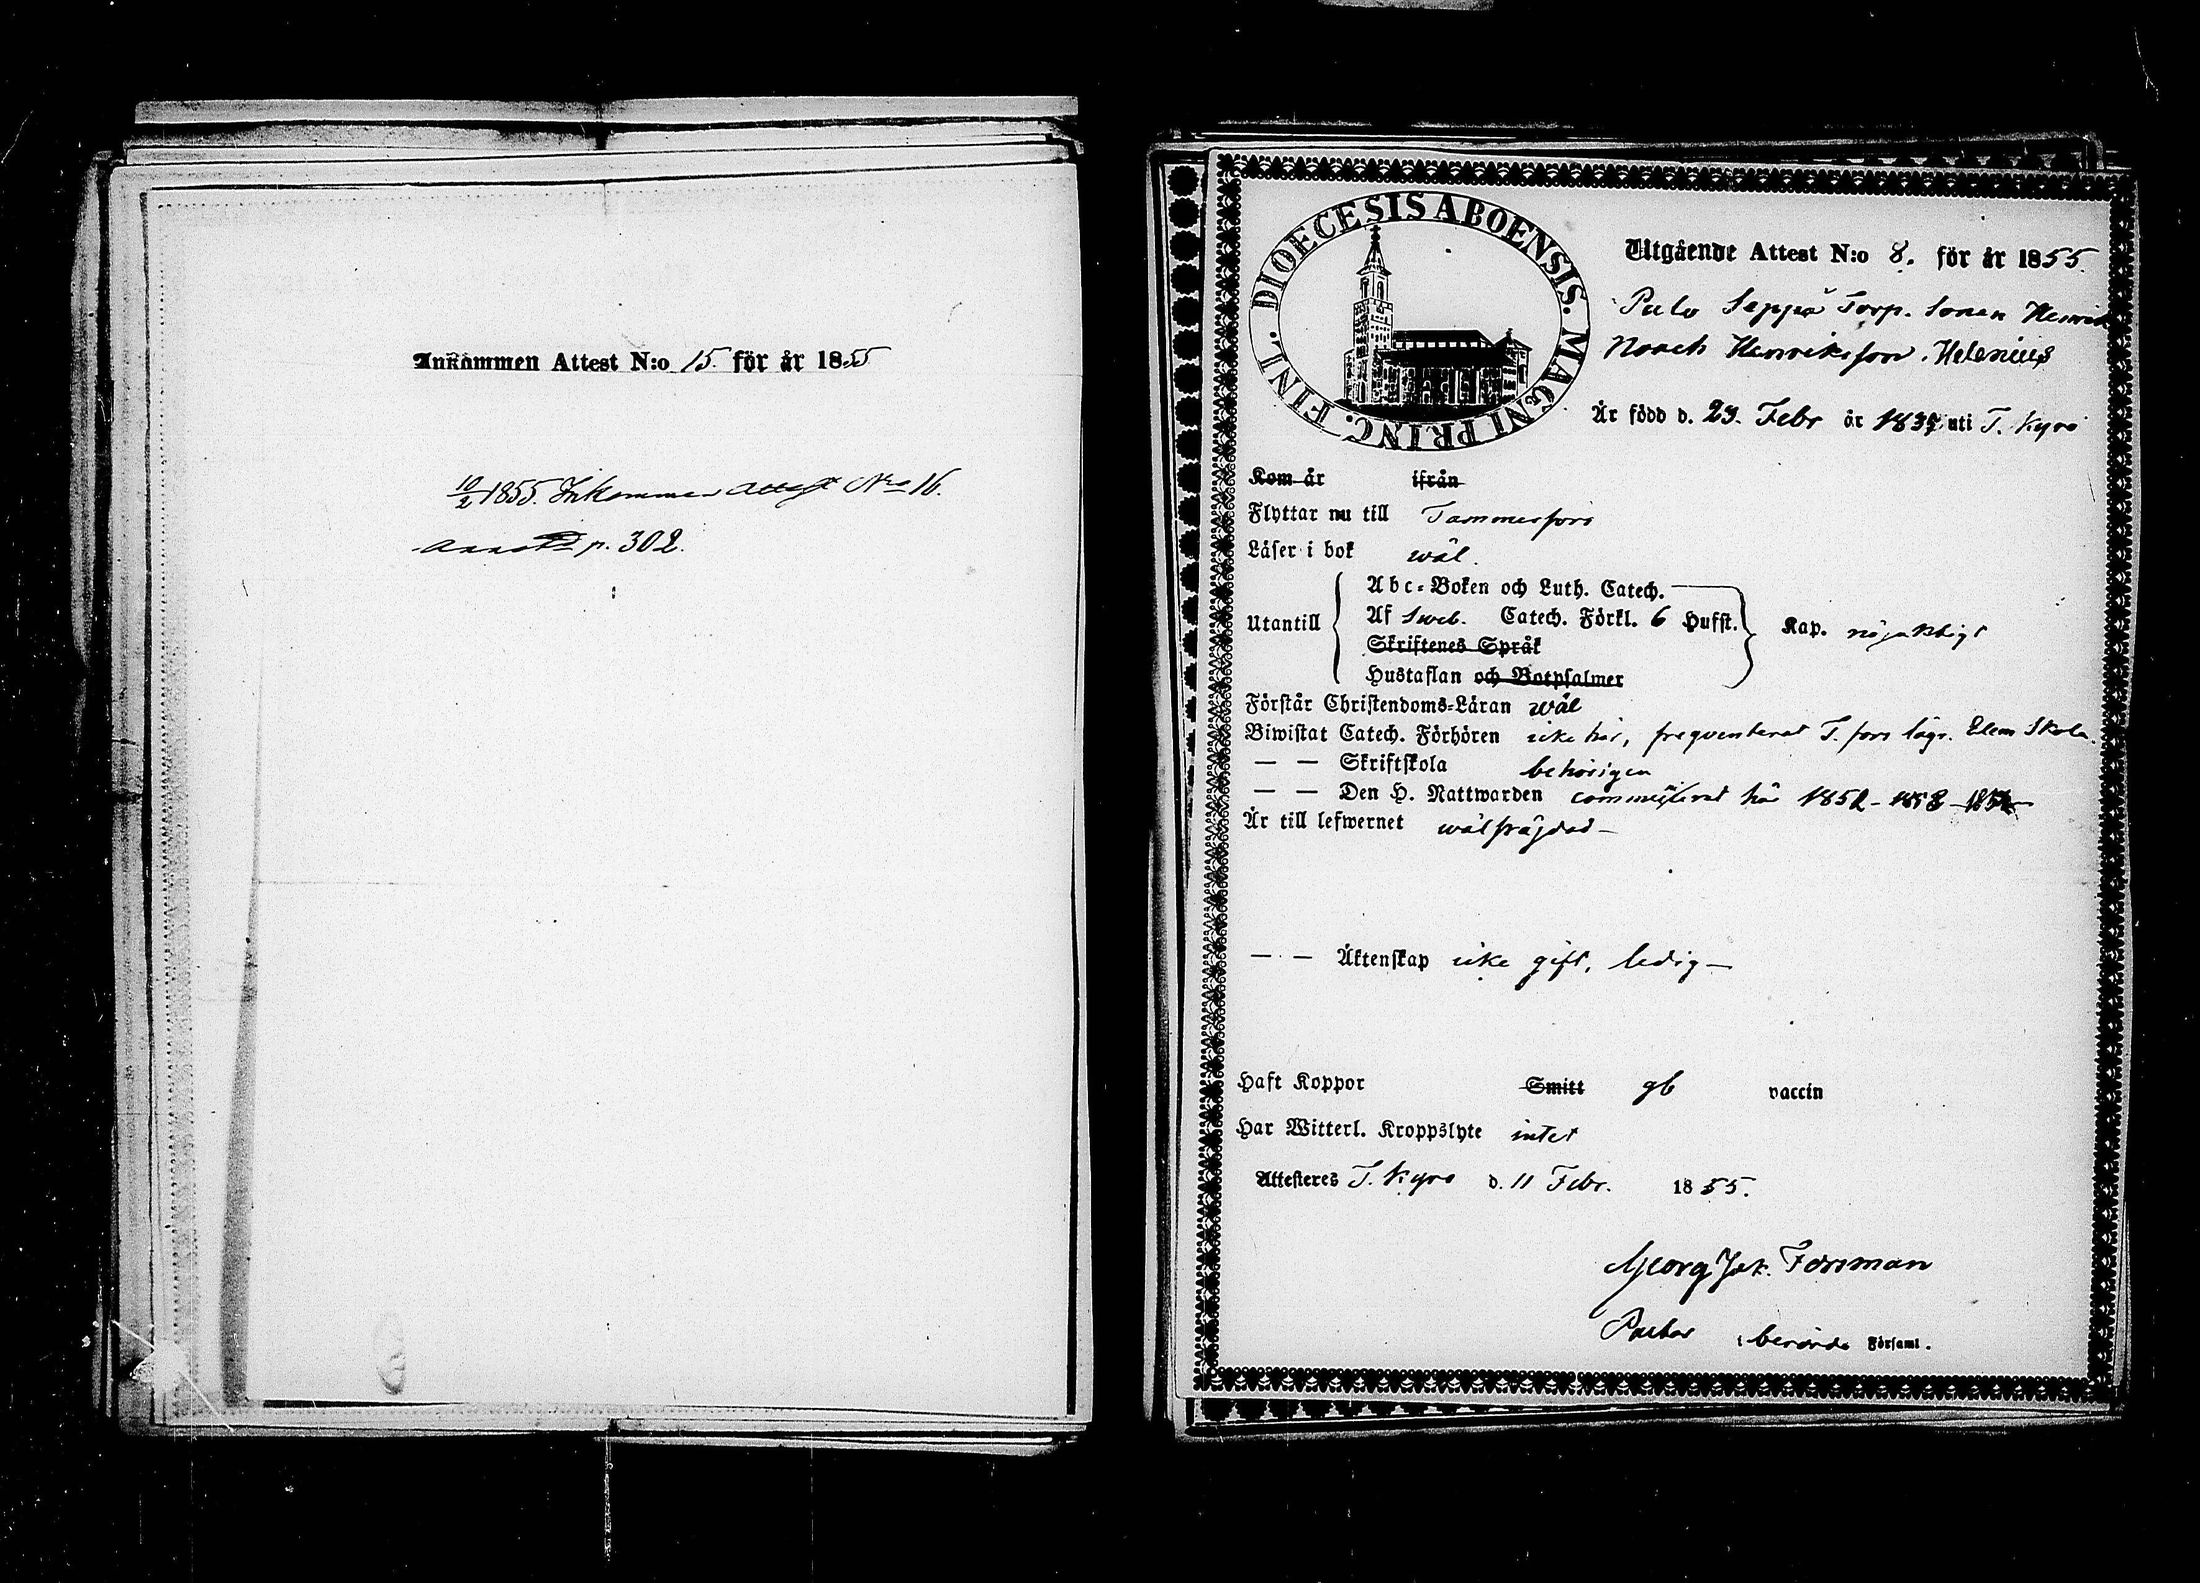 Ankommen Attest N:o 15. för år 1855
10/2 1855. Inkommen attest No 16.
p. 302.
DIOECESIS ABOENSIS. MAGNI PRINC. FINL.
Utgående Attest N:o 8. för år 1855.
Pulo Seppä Torp. Sonen Henrik
Noach Henriksson. Helenius
Är född d. 23. Febr år 183 uti T. Kyro
Kom år ifrån
Flyttar nu till Tammerfors
Läser i bok wäl.
Abc-Boken och Luth. Catech.
Utantill Af Sweb. Catech. Förkl. 6 Hufst. Kap. nöjaktigt
Skriftenes Språk
Hustaflan och Botpsalmer
Förstår Christendoms-Läran wäl
Biwistat Catech. Förhören icke här, frequenterat T. fors lägr. Elem Skola.
— — Skriftskola behörigen
— — Den H. Nattwarden här 1852 - 1853 -
Är till lefwernet wälfrägdad —
— — Äktenskap icke gift, ledig —
Haft Koppor Smitt gb vaccin
Har Witterl. Kroppslyte intet
Attesteres T. Kyro d. 11 Febr. 1855.
Georg Jak. Forsman
Pastor i berörde Församl.